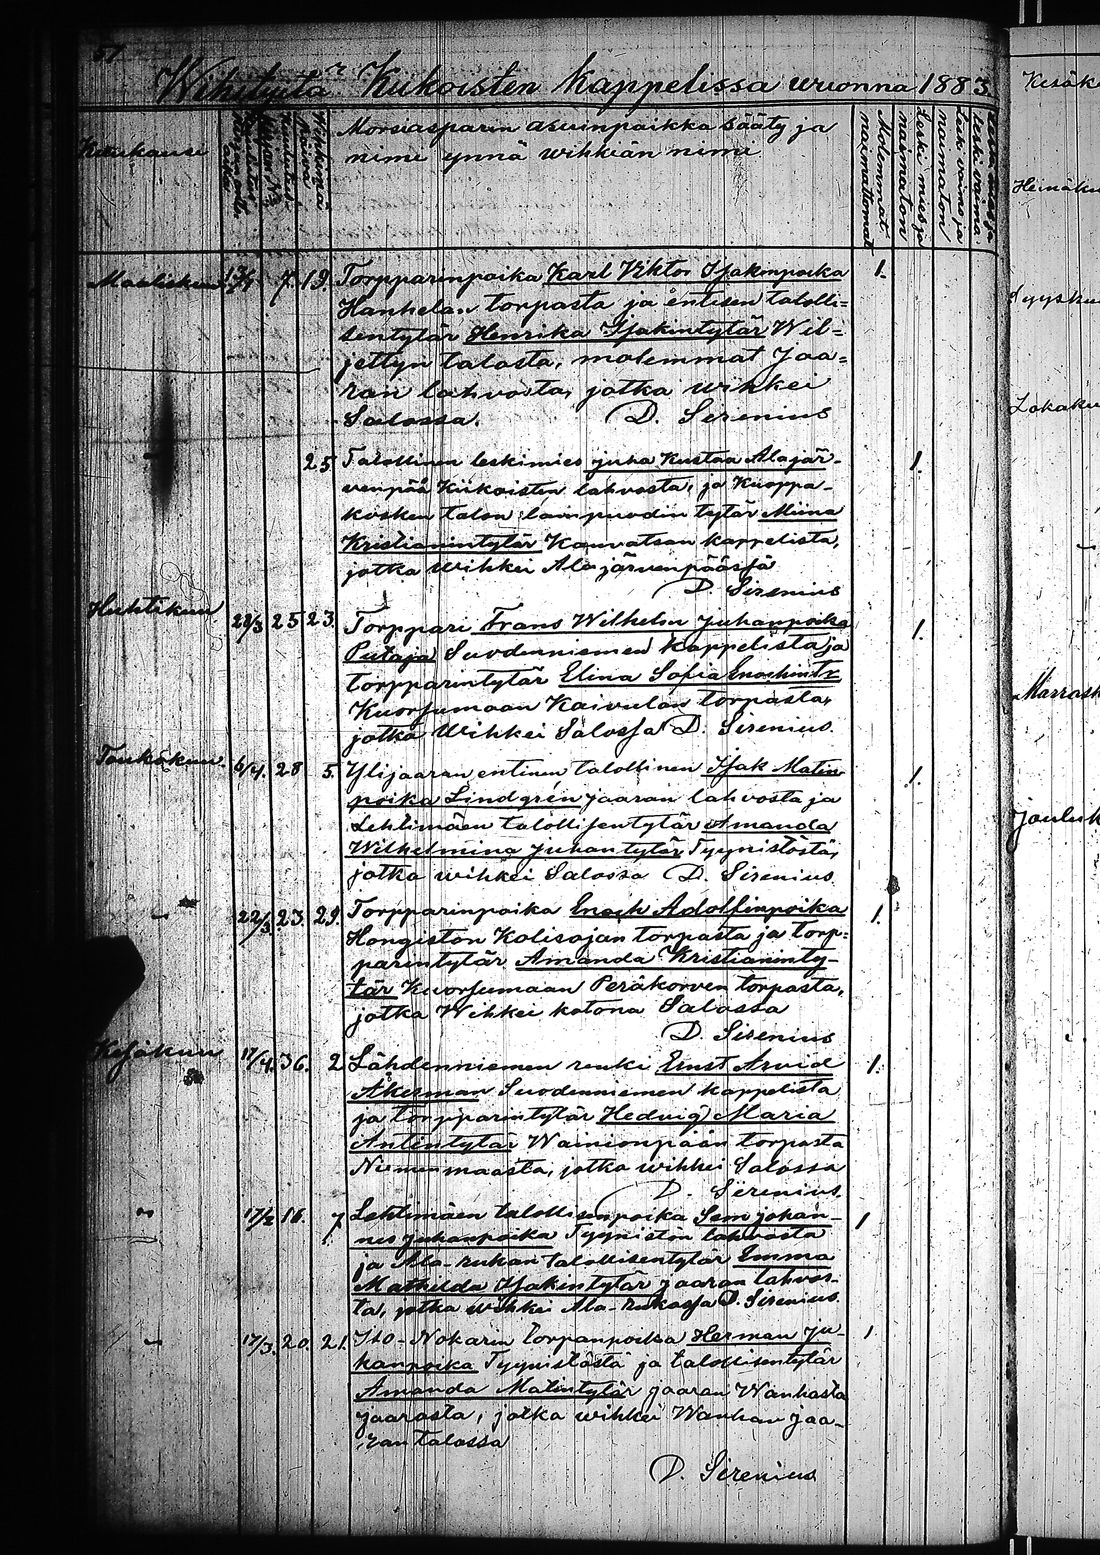 51
Wihityitä Kiikoisten kappelissa wuonna 1883.
Kuukausi
Morsiasparin asuinpaikka sääty ja
nimi ynnä wihkiän nimi
Molemmat
naimattomat
Leski mies ja
naimaton
Leski vaimo ja
naimaton
Maaliskuu 13/1 7. 19. Torpparinpoika Karl Viktor Isakinpoika 1.
Hanhelan torpasta ja entisen talolli=
sentytär Henrika Isakintytär Wil=
jettyn talosta, molemmat Jaa=
ran lahvosta, jotka wihkei
Salossa. D. Sirenius
25 Talollinen leskimies Juha Kustaa Alajär- 1.
venpää Kiikoisten lahvosta, ja Kuoppa-
kosken talon lampuodin tytär Miina
Kristianintytär Kauvatsan kappelista,
jotka wihkei Alajärvenpäässä
D. Sirenius
Huhtikuu 22/3 25 23. Torppari Frans Wilhelm Juhanpoika 1.
Putaja Suodenniemen kappelista ja
torpparintytär Elina Sofia Enochintr
Kuorsumaan Kaivulan torpasta,
jotka Wihkei Salossa D. Sirenius.
Toukokuu. 6/4. 28 5. Ylijaaran entinen talollinen Isak Matin 1.
poika Lindgrén Jaaran lahvosta ja
Lehtimäen talollisentytär Amanda
Wilhelmina Juhantytär Tyynistöstä,
jotka wihkei Salossa D. Sirenius.
" 22/3. 23. 29. Torpparinpoika Enoch Adolfinpoika 1.
Hongiston Kolisojan torpasta ja torp=
parintytär Amanda Kristianinty-
tär Kuorsumaan Peräkorven torpasta,
jotka Wihkei kotona Salossa
D. Sirenius
Kesäkuu 17/4. 36. 2 Lähdenniemen renki Ernst Arvid 1.
Åkerman Suodenniemen kappelista
ja torpparintytär Hedvig Maria
Antintytär Wainionpään torpasta
Niemenmaasta, jotka wihkei Salossa
D. Sirenius.
" 17/2 16. 7 Lehtimäen talollisenpoika Sem Johan- 1
nes Juhanpoika Tyynistön lahvosta
ja Ala-ruhan talollisentytär Emma
Mathilda Isakintytär Jaaran lahvos-
ta, jotka wihkei Ala-ruhassa D. Sirenius.
" 17/3. 20. 21. Iso-Nokarin torpanpoika Herman Ju- 1
hanpoika Tyynistöstä ja talollisentytär
Amanda Matintytär Jaaran Wanhasta
jaarasta, jotka wihkei Wanhan jaa-
ran talossa
D. Sirenius
Heinäku
Syysku
Lokaku
Marrask
Jouluk